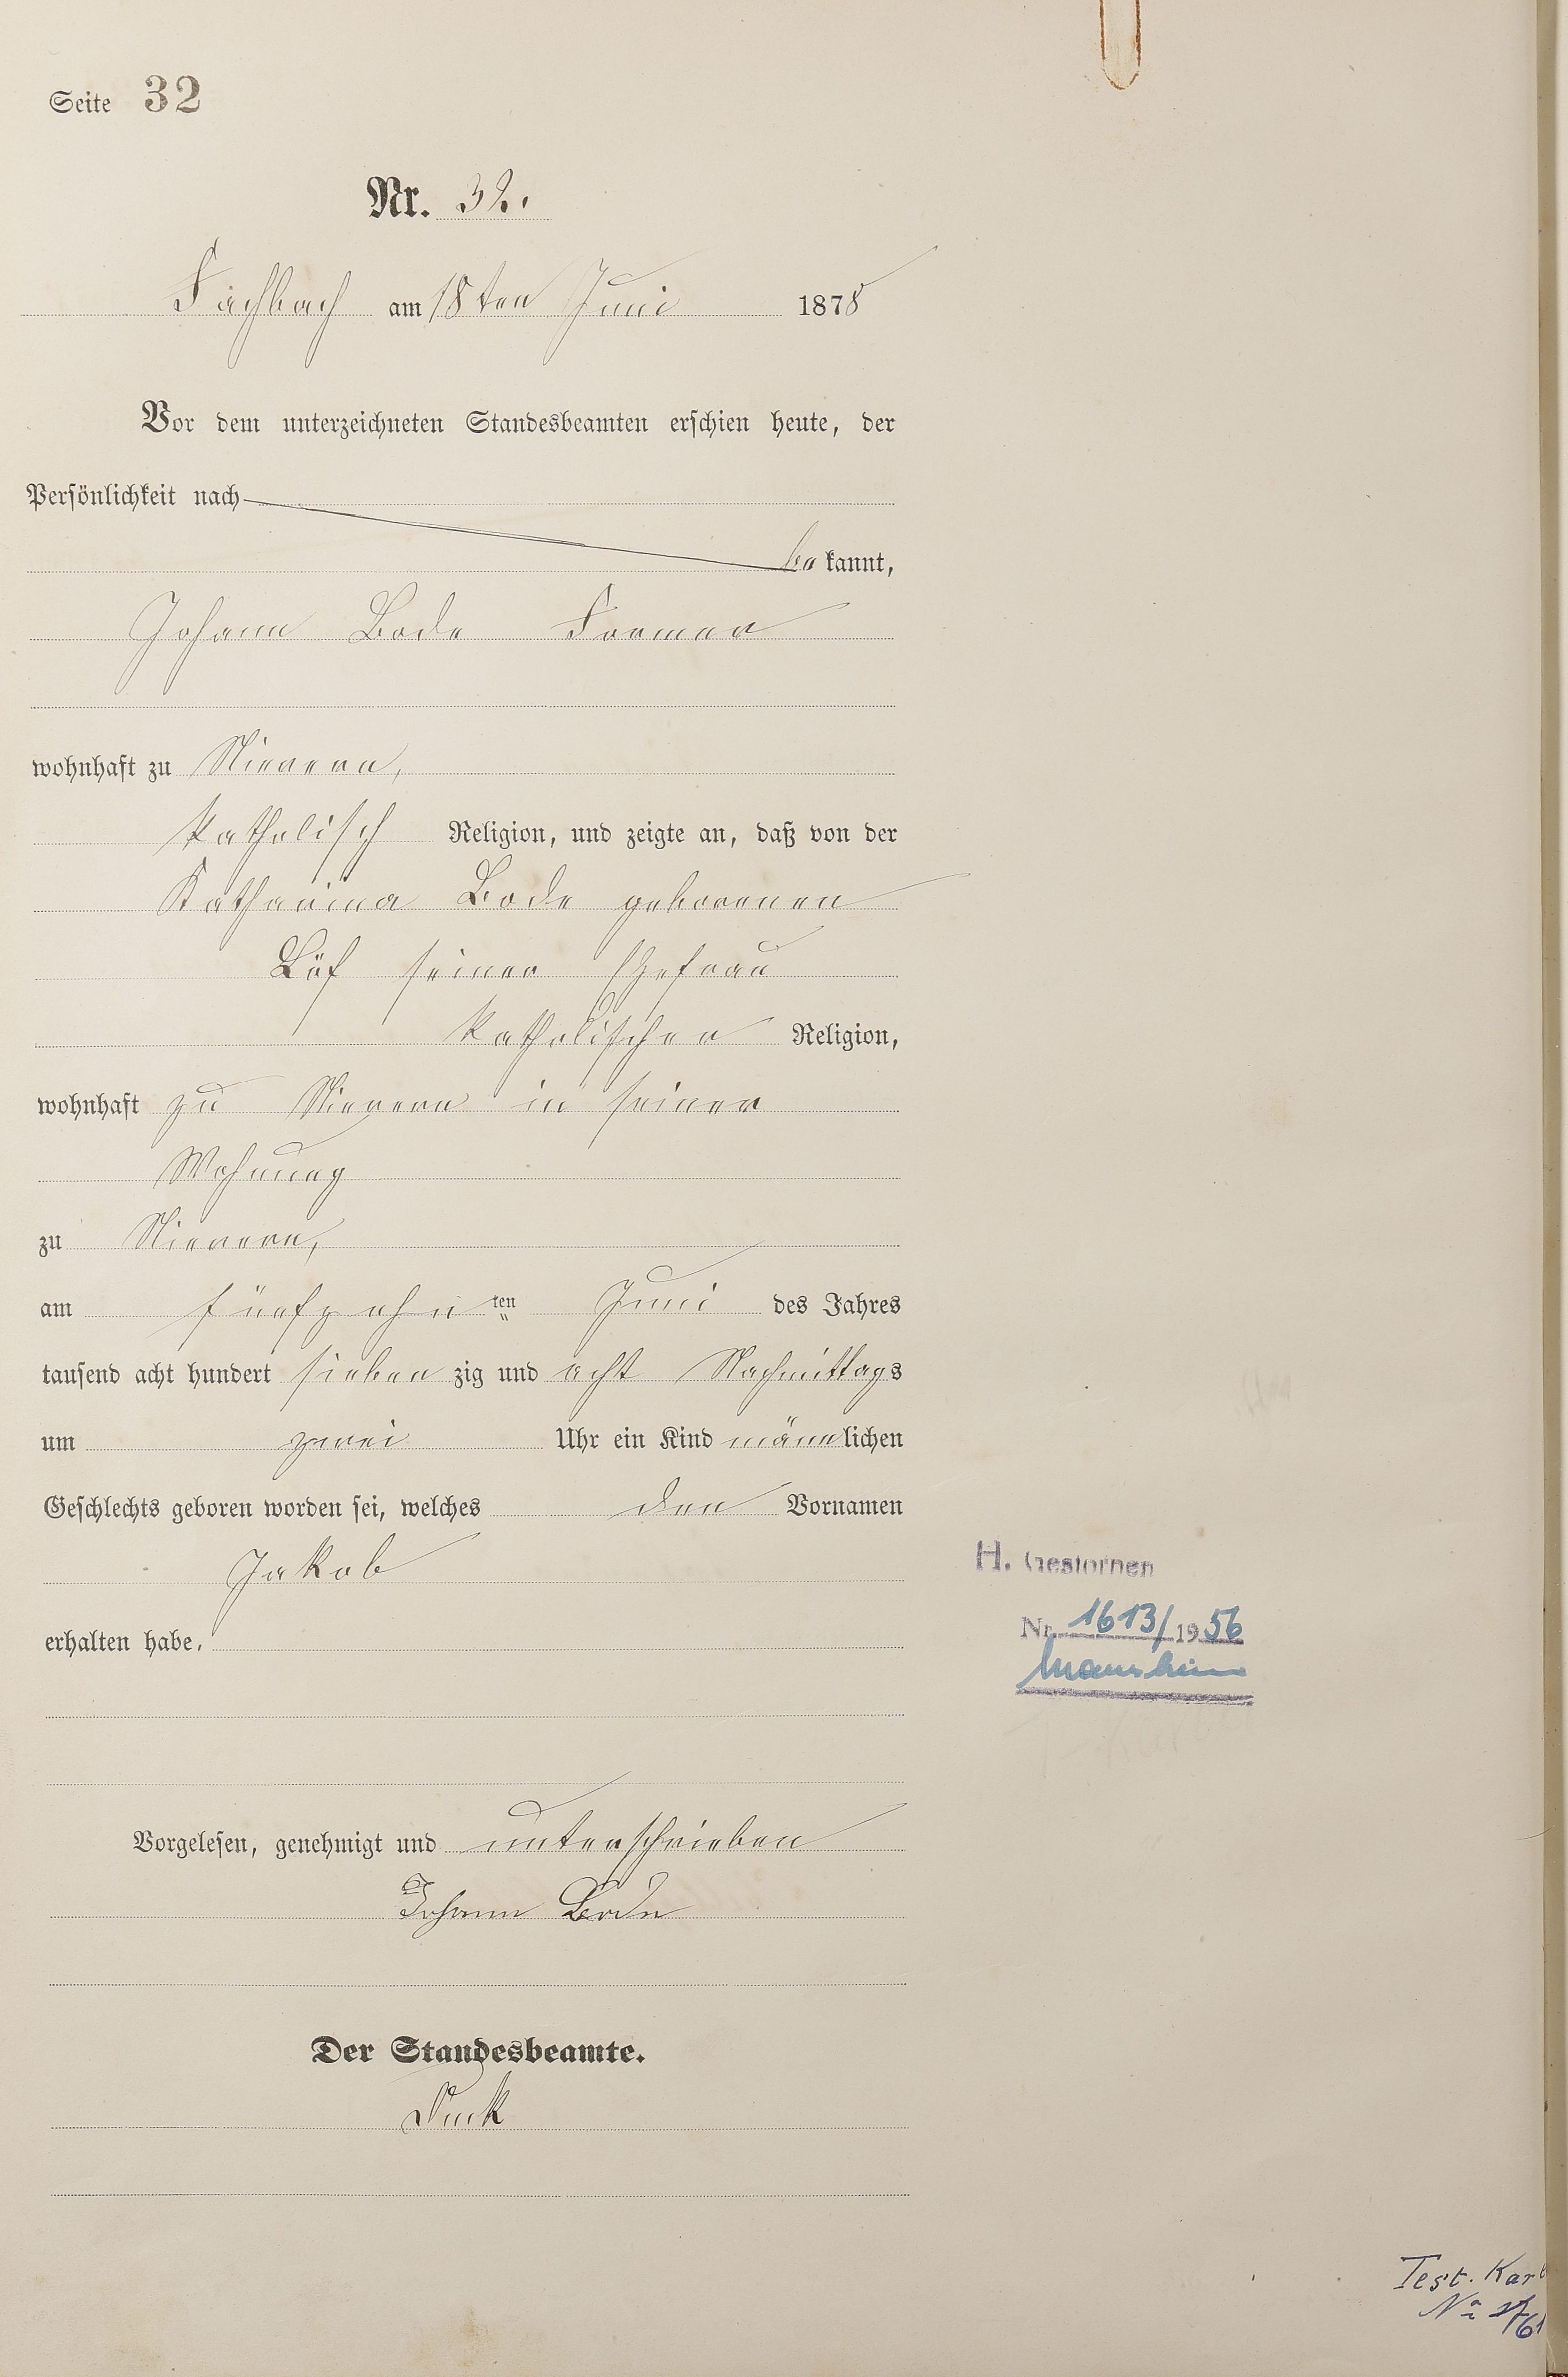 Seite 32
Nr. 32.
Fachbach am 18ten Juni 1878
Vor dem unterzeichneten Standesbeamten erschien heute, der
Persönlichkeit nach
bekannt,
Johann Bode Former
wohnhaft zu Nievern,
katholisch Religion, und zeigte an, daß von der
Katharina Bode geborenen
Löf seiner Ehefrau
katholischer Religion,
wohnhaft zu Nievern in seiner
Wohnung
zu Nievern,
am fünfzehn ten Juni des Jahres
tausend acht hundert sieben zig und acht Nachmittags
um zwei Uhr ein Kind männlichen
Geschlechts geboren worden sei, welches den Vornamen
Jakob
erhalten habe.
H. Gestorben
Nr. 1613/1956
Mannheim
Vorgelesen, genehmigt und unterschrieben
Johann Bode
Der Standesbeamte.
Test. Kart